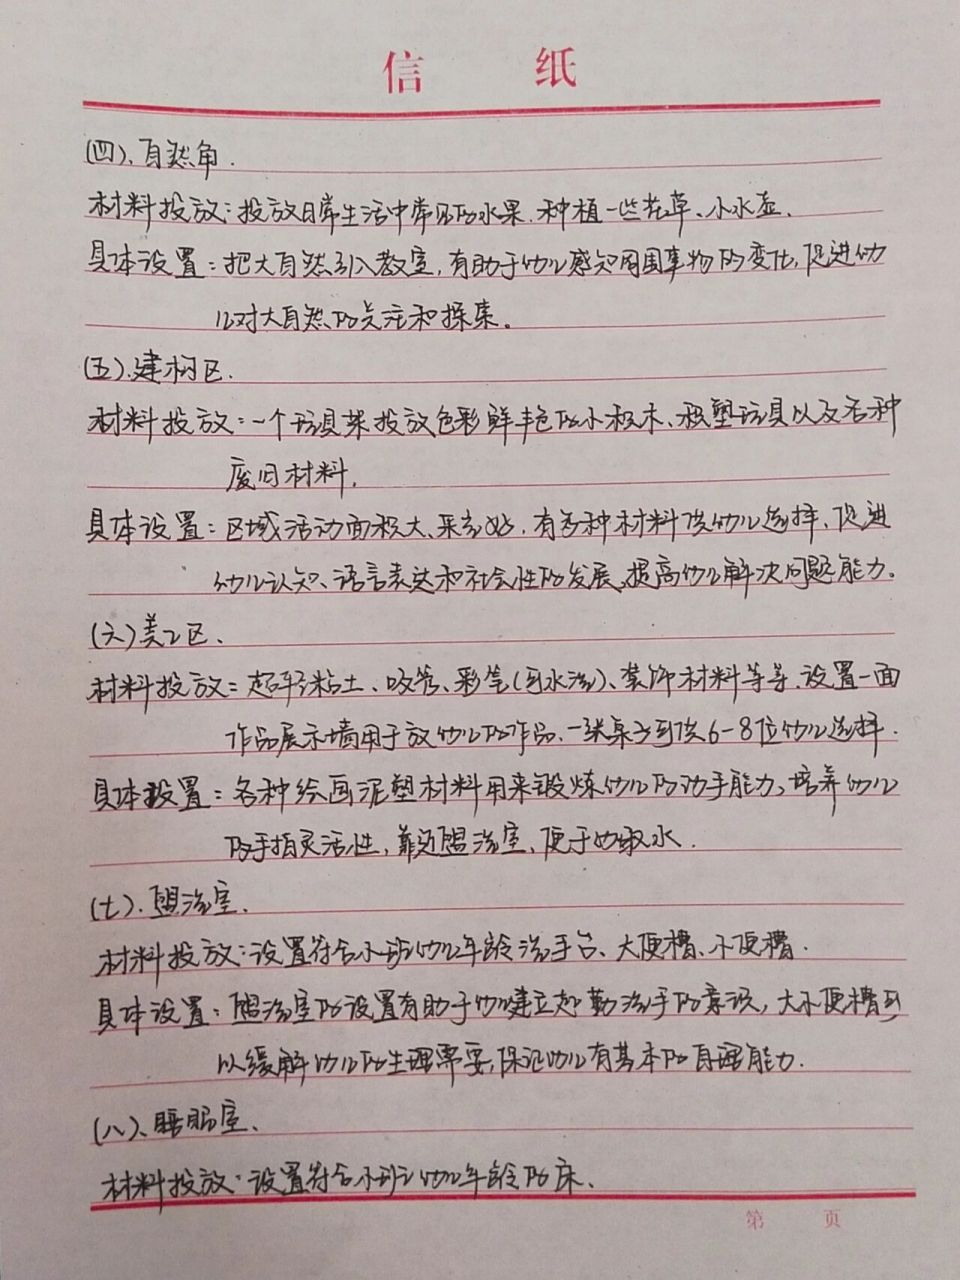 信 纸
(四)、自然角.
材料投放:投放日常生活中常见的水果.种植一些花草、小水壶.
具体设置:把大自然引入教室,有助于幼儿感知周围事物的变化,促进幼
儿对大自然的关注和探索。
(五)、建构区.
材料投放:一个玩具架投放色彩鲜丰色的小积木、积塑玩具以及各种
废旧材料.
具体设置:区域活动面积大、采光好,有多种材料供幼儿选择、促进
幼儿认知、语言表达和社会性的发展,提高幼儿解决问题能力。
(六)美工区.
材料投放:超轻粘土、吸管、彩笔(可水洗)、装饰材料等等.设置一面
作品展示墙用于放幼儿的作品、一张桌子可供6-8位幼儿选择.
具体设置:各种绘画泥塑材料用来锻炼幼儿的动手能力、培养幼儿
的手指灵活性,靠近盥洗室,便于取水.
(七).盥洗室.
材料投放:设置符合小班幼儿年龄洗手台、大便槽、小便槽.
具体设置:盥洗室的设置有助于幼儿建立起勤洗手的意识,大小便槽可
以缓解幼儿的生理需要,保证幼儿有基本的自理能力.
(八)、睡眠室、
材料投放:设置符合小班幼儿年龄的床、
第 页